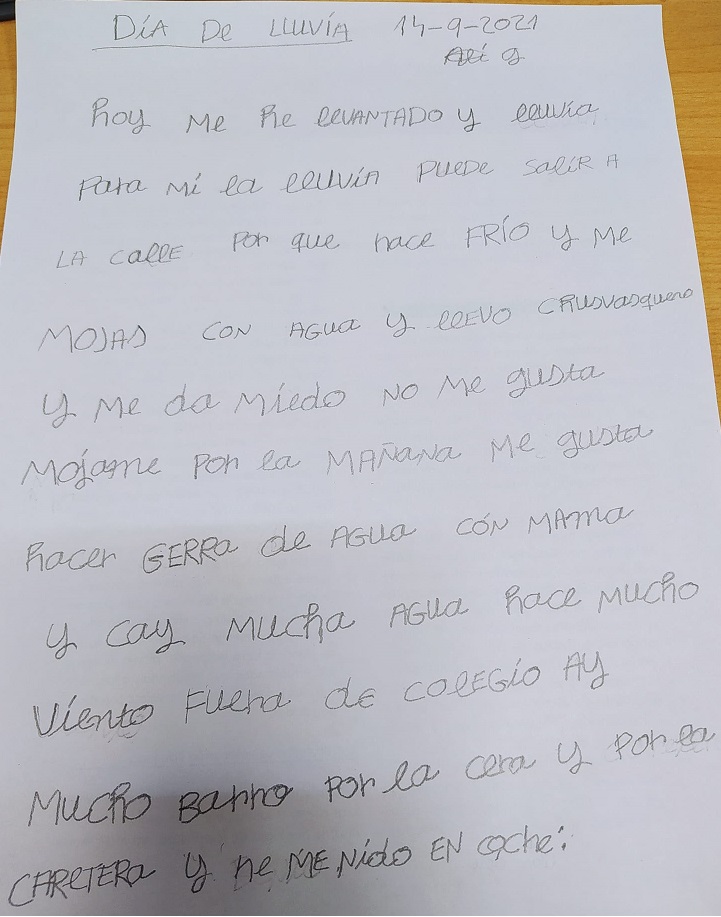 DÍA De LLUVÍA 14-9-2021
hoy Me he llevANTADO y lluvía
Para Mí la lluvíA PUEDE SalíR A
LA CallE Por que hace FRÍO y Me
MOJAS CON AGUA y llEVO
y Me da Miedo NO Me gusta
Mojame Por la MAÑANA Me gusta
hacer GERRa de AGUa CÓN MAMa
y Cay Mucha AGUA hace MUCho
Viento FUera dE COlEGío AY
Mucho Barro Por la cera y Por la
CARETERa y he MENido EN coche: